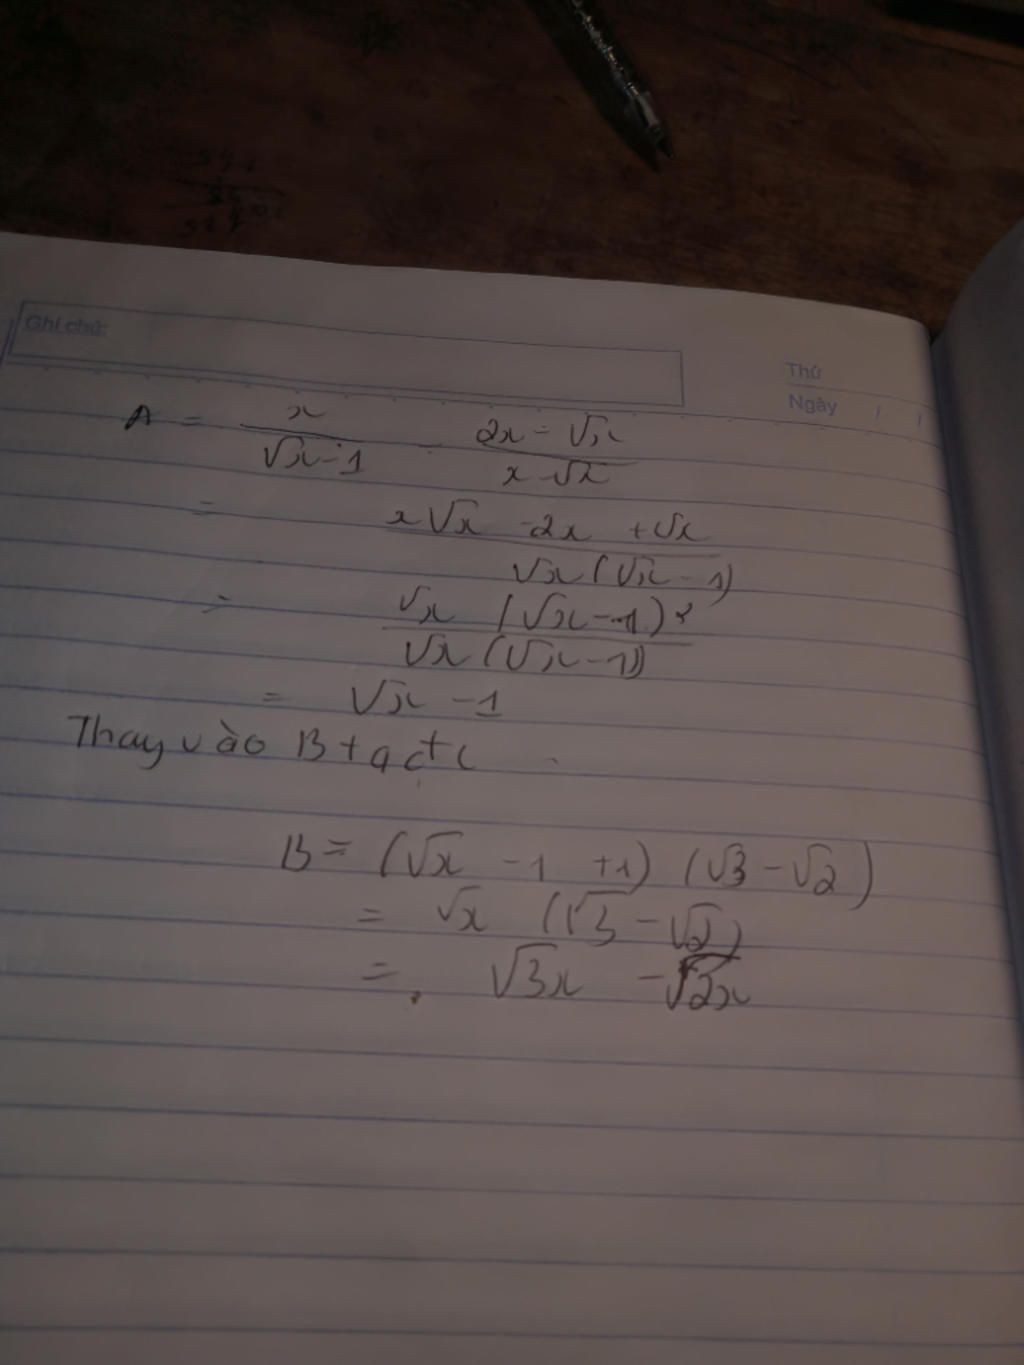 Ghi chú:
Thứ
Ngày / /
A = x/(√x - 1) - (2x - √x)/(x - √x)
= (x√x - 2x + √x)/(√x(√x - 1))
= (√x (√x - 1)²)/(√x(√x - 1))
= √x - 1
Thay vào B ta được
B = (√x - 1 + 1) (√3 - √2)
= √x (√3 - √2)
= √3x - √2x